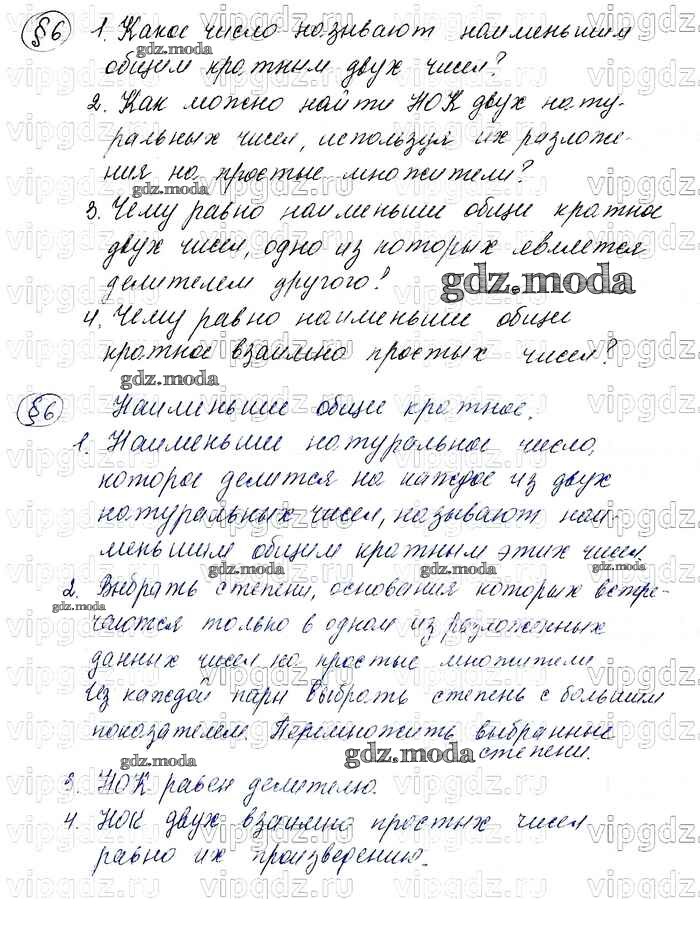 §6 1. Какое число называют наименьшим
gdz.moda
общим кратным двух чисел?
2. Как можно найти НОК двух нату-
ральных чисел, используя их разложе-
ния на простые множители?
gdz.moda
3. Чему равно наименьшие общие кратное
двух чисел, одно из которых является
делителем другого?
gdz.moda
4. Чему равно наименьшие общие
кратное взаимно простых чисел?
gdz.moda
§6 Наименьшие общие кратное.
1. Наименьшие натуральное число,
которое делится на каждое из двух
натуральных чисел, называют наи-
меньшим общим кратным этих чисел.
gdz.moda gdz.moda gdz.moda
2. Выбрать степени, основания которых встре-
gdz.moda
чаются только в одном из разложенных
данных чисел на простые множители
Из каждой пары выбрать степень с большим
показателем. Перемножить выбранные
степени.
gdz.moda gdz.moda
3. НОК равен делителю.
4. НОК двух взаимно простых чисел
равно их произведению.
vipgdz.ru